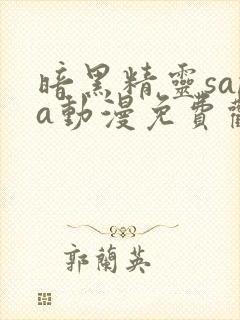 暗黑精靈sa
a動漫免費
郭蘭英